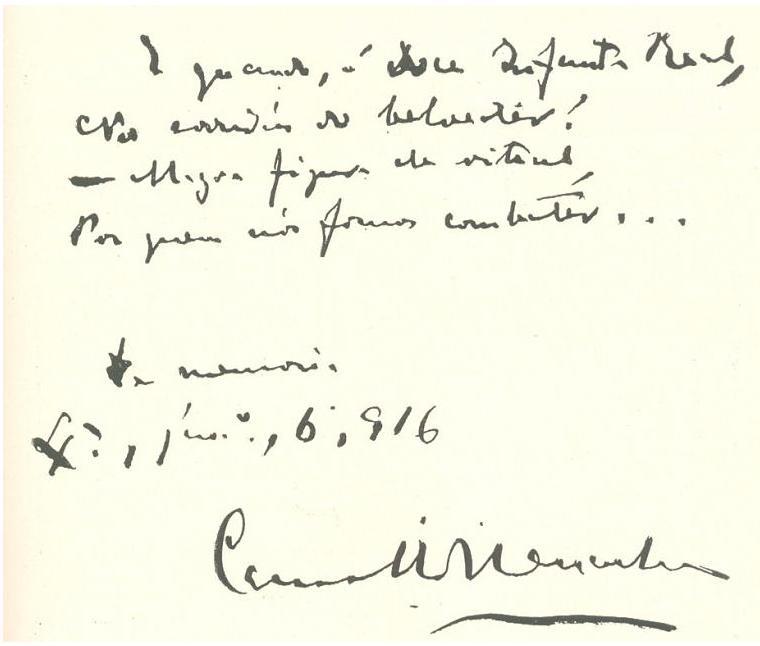 E quando, ó Doce Infanta Real,
Nos sorrirás do belvedér?
— Magra figura de vitral,
Por quem nós fomos combatér...
De memoria
Lx.ª, jan.º, 6, 916
Camillo Pessanha